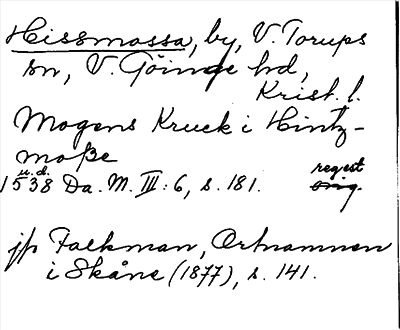 Hissmossa, by, V. Torups
sn, V. Göinge hd,
Krist. l.
Mogens Kruck i Hintz-
moße
u.d. regest
1538 Da. M. III: 6, s. 181. orig.
jfr Falkman, Ortnamnen
i Skåne (1877), s. 141.